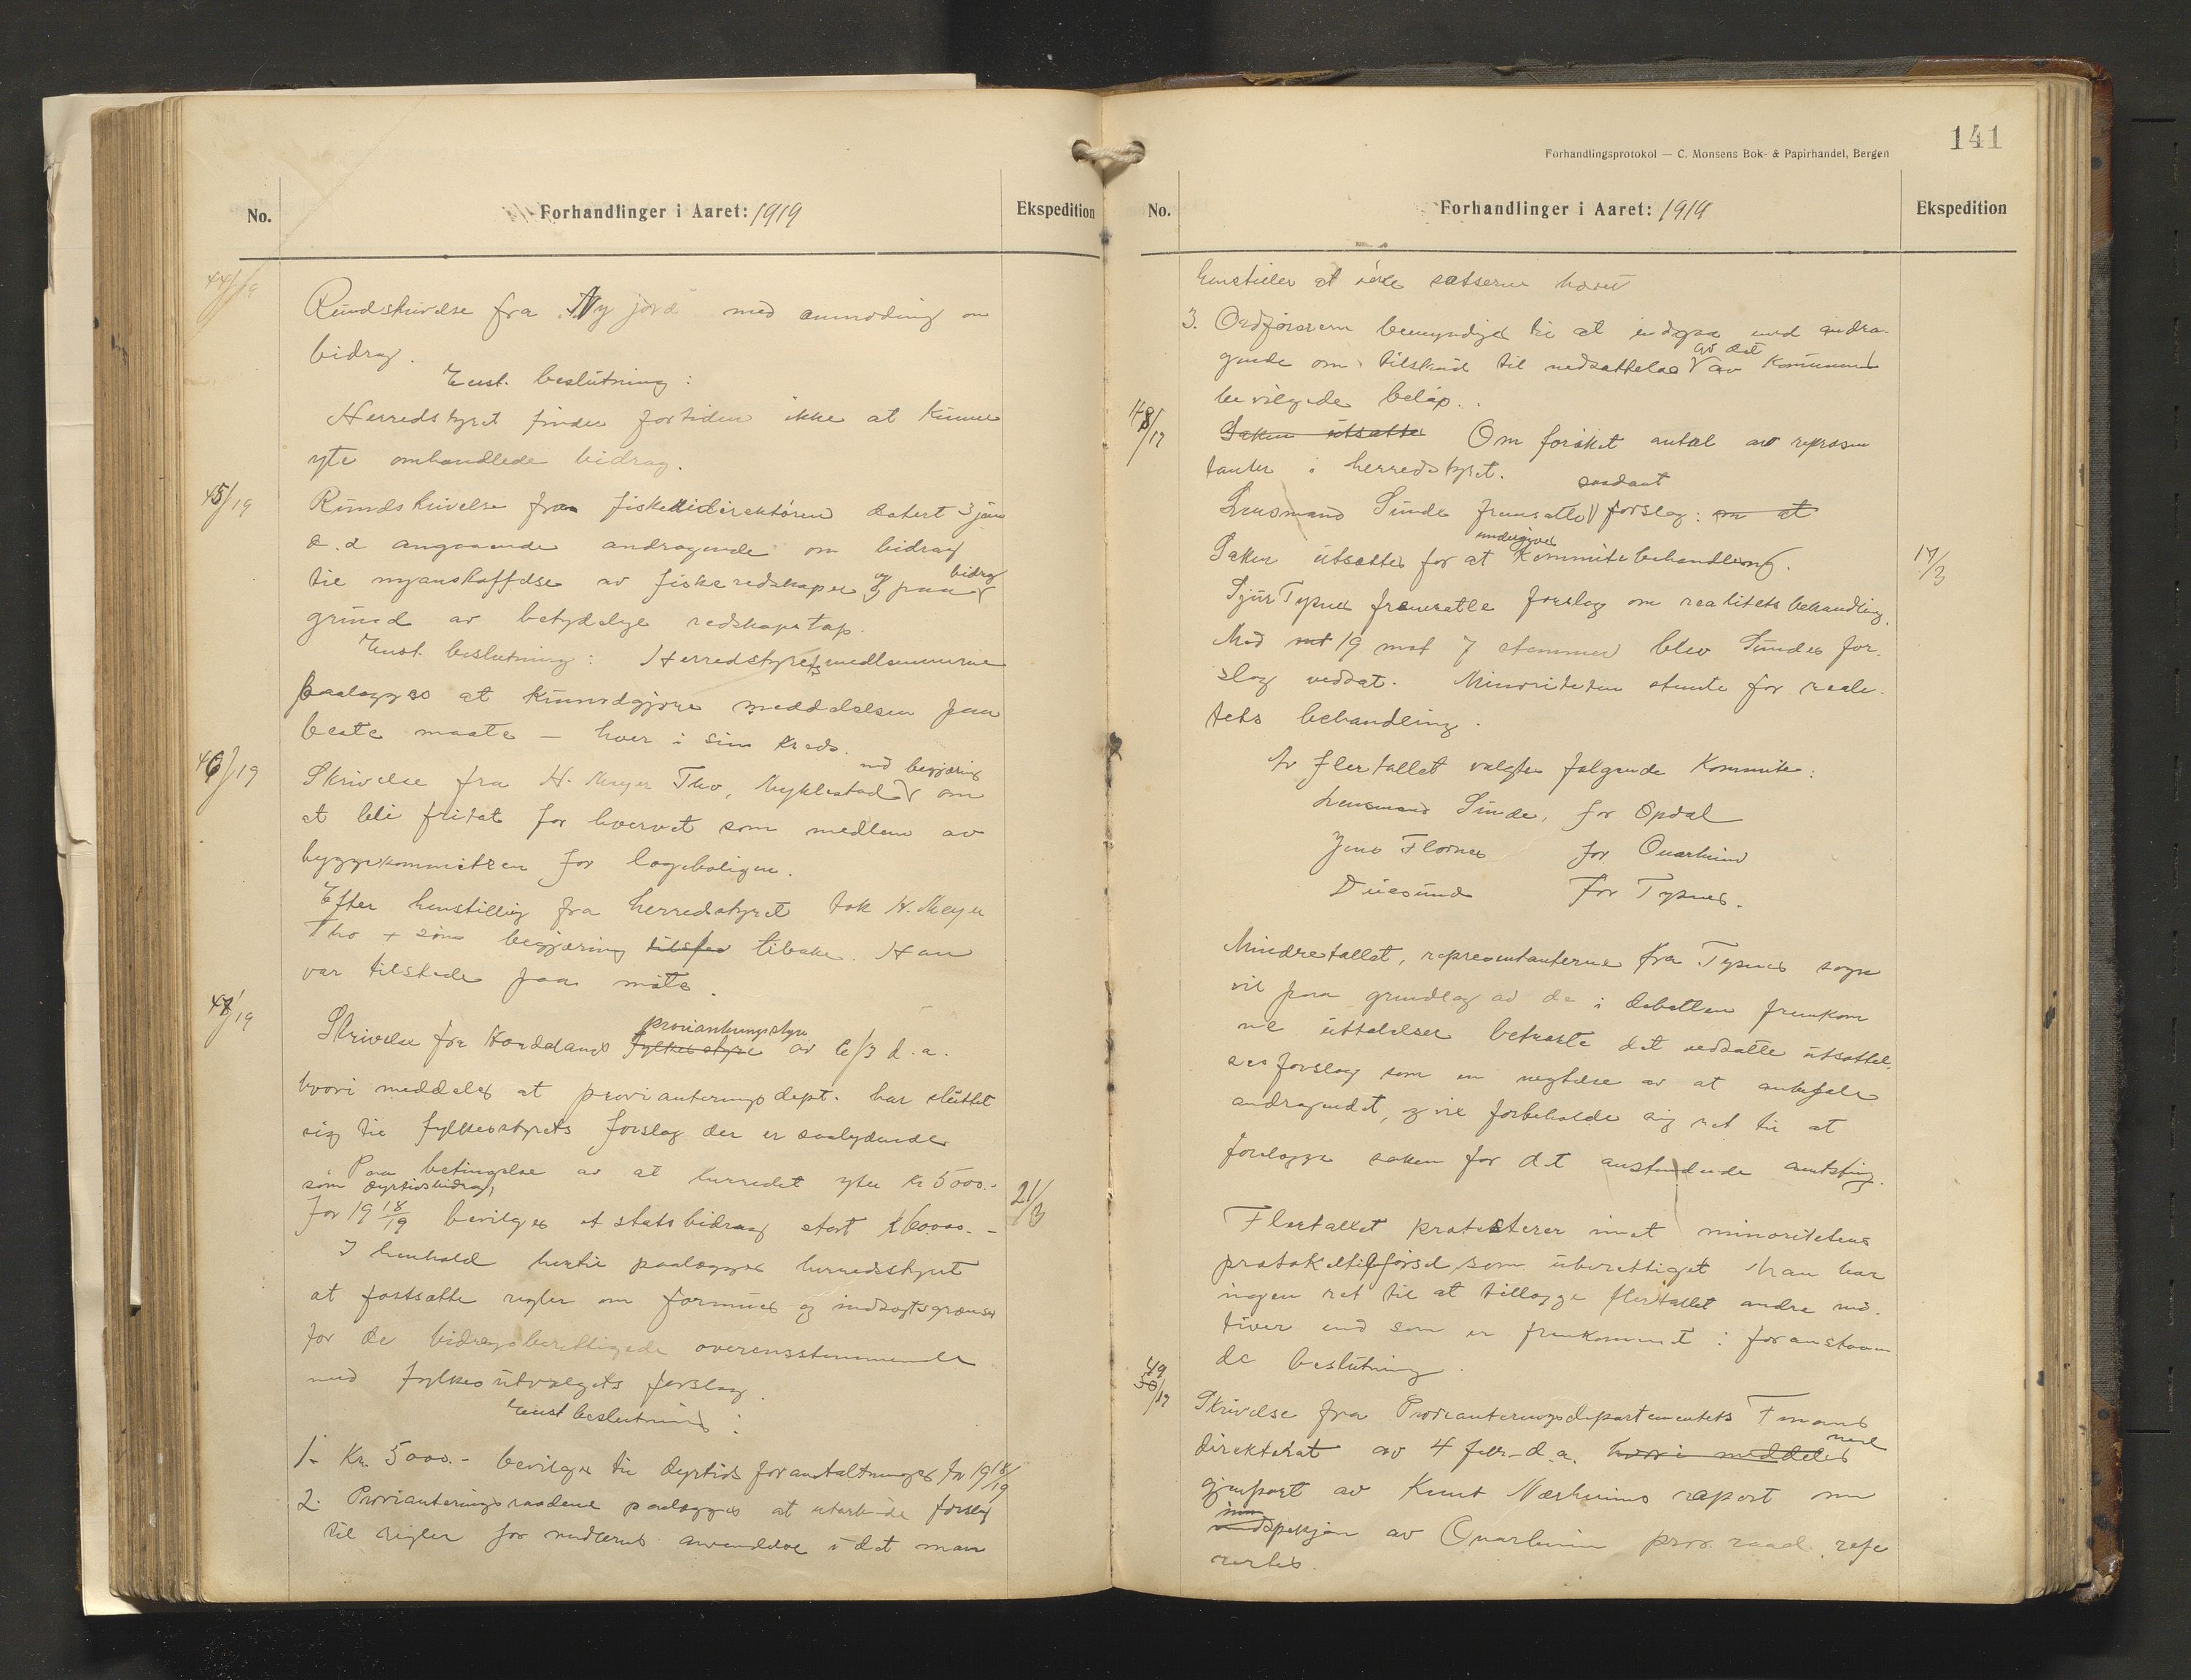 No.
Forhandlinger i Aaret: 1919
Ekspedition
44/19
Rundskrivelse fra Ny jord med anmoding om
bidrag.
Enst. beslutning:
Herredstyret finder fortiden ikke at kunne
yte omhandlede bidrag.
45/19
Rundskrivelse fra fiskeridirektøren datert 3 jan
d.a angaaende andragende om bidrag
til nyanskaffelse av fiskeredskaper og bidrag paa
grund av betydelige redskapstap.
Enst. beslutning: Herredstyretsmedlemmerne
paalægges at kundgjøre meddelelsen paa
beste maate – hver i sin kreds.
46/19
Skrivelse fra H. Meyer Tho, Myklestad med begjæring om
at bli fritat for hvervet som medlem av
byggekommiteen for lægeboligen.
Efter henstilling fra herredstyret tok H. Meyer
Tho sin begjæring tilbake. Han
var tilstede paa møte.
47/19
Skrivelse fra Hordalands fylkesstyre provianteringsstyre av 6/3 d.a.
hvori meddeles at provianteringsdept. har sluttet
sig til fylkesstyrets forslag der er saalydende
Paa betingelse av at herredet yter Kr 5000.-
som dyrtidsbidrag,
for 19 18/19 bevilges et statsbidrag stort 16000.-
21/3
I henhold hertil paalægges herredsstyret
at fastsætte regler om formues og indtægtsgrænser
for de bidragsberettigede overensstemmende
med fylkesutvalgets forslag.
Enst beslutning:
1. Kr. 5000.- bevilges til dyrtids foranstaltninger for 1918/19
2. Provianteringsraadene paalægges at utarbeide forslag
til regler for midlernes anvendelse idet man
Forhandlingsprotokol — C. Monsens Bok- & Papirhandel, Bergen
141
No.
Forhandlinger i Aaret: 1919
Ekspedition
henstiller at søke satserne hævet
3. Ordføreren bemyndiges til at indgaa med andra-
gende om tilskud til nedsættelse av det av kommunen
bevilgede beløp.
48/19
Saken utsættes Om forøket antal av repræsen
tanter i herredstyret.
Lensmand Sunde fremsatte saadant forslag: om at
Saken utsættes for at undergives kommitebehandling.
17/3
Sjur Tysnes fremsatte forslag om realitetsbehandling.
Med mot 19 mot 7 stemmer blev Sundes for-
slag vedtat. Minoriteten stemte for reali-
tets behandling.
Av flertallet valgtes følgende kommite:
Lensmand Sunde, for Opdal
Jens Flornes for Onarheim
Duesund for Tysnes.
Mindretallet, representanterne fra Tysnes sogn
vil paa grundlag av de i debatten fremkom
ne uttalelser betrakte det vedtatte utsættel-
sesforslag som en negtelse av at anbefale
andragendet, og vil forbeholde sig ret til at
forelægge saken for det anstundende amtsting.
Flertallet protesterer imot minoritetens
protokoltilførsel, som uberettiget. Man har
ingen ret til at tillægge flertallet andre mo-
tiver end som er fremkommet i foranstaaen
de beslutning.
49/19
Skrivelse fra Provianteringsdepartementets Finans
direktorat av 4 febr. d.a. hvori meddeles med
gjenpart av Knut Nærheims raport om
inspeksjon av Onarheim prov.raad. refe
rertes.